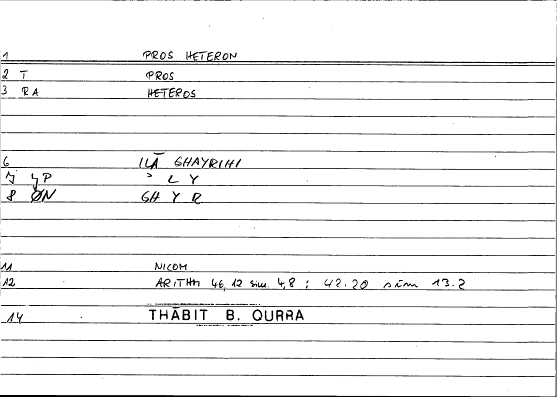 1 PROS HETERON
2 T PROS
3 RA HETEROS
6 ILĀ GHAYRIHI
7 YP ʾ L Y
8 ØN GH Y R
11 NICOM
12 ARITHM 46,12 sim. 4,8 ; 42.20 sim 13.2
14 THĀBIT B. QURRA